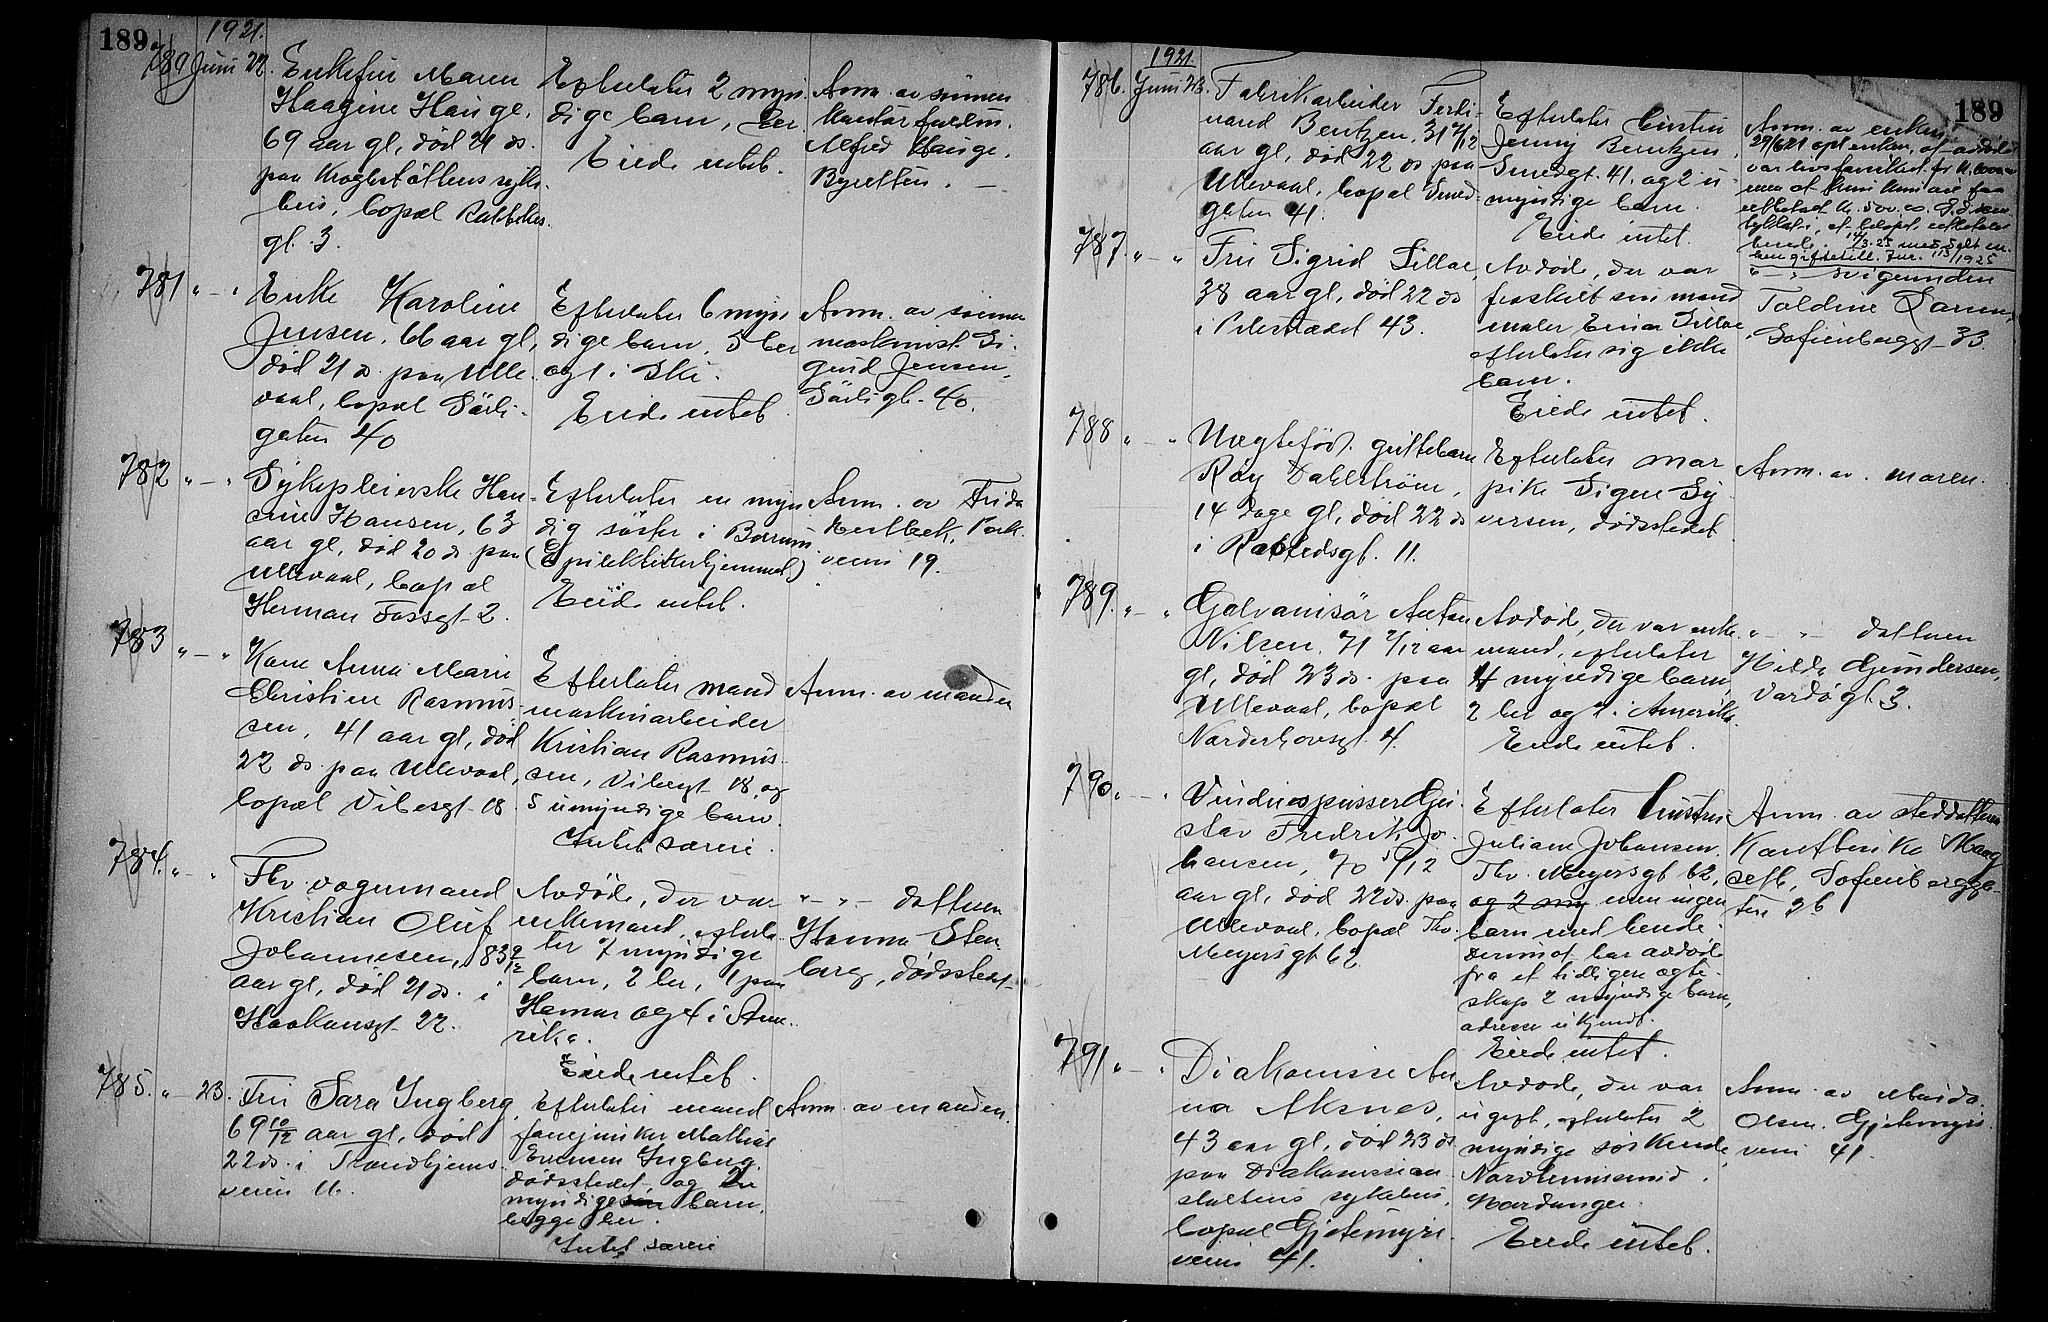 189
1921.
780 Juni 22.
Enkefru Maren
Haagine Hauge,
69 aar gl, död 21 ds.
paa Kroghstöttens syke-
hus, bopæl Rubbikes
gt. 3.
Efterlater 2 myn-
dige barn, her
Eiede intet.
Anm. av sönnen
kontorfuldm.
Alfred Hauge,
Byretten. —
781 " — "
Enke Karoline
Jensen, 66 aar gl,
död 21 ds. paa Ulle-
vaal, bopæl Sörli-
gaten 40
Efterlater 6 myn
dige barn, 5 her
og 1 i Ski.
Eiede intet
Anm. av sönnen
maskinist Si-
gurd Jensen,
Sörligt. 40.
782 " — "
Sykepleierske Han-
sine Hansen, 63
aar gl, död 20 ds paa
Ullevaal, bopæl
Herman Fossgt 2.
Efterlater en myn
dig söster i Bærum
(Epileptikerhjemmet)
Eiede intet.
Anm. av Frida
Park-
veien 19.
783 " — "
Kone Anna Marie
Christine Rasmus-
sen, 41 aar gl, död
22 ds. paa Ullevaal,
bopæl Vibesgt 18
Efterlater mand
maskinarbeider
Kristian Rasmus-
sen, Vibesgt 18, og
5 umyndige barn.
Intet særeie.
Anm. av manden
784. " — "
Fhv. vognmand
Kristian Oluf
Johannesen, 83 9/12
aar gl, död 21 ds. i
Haakonsgt 22.
Avdöde, der var
enkemand, efterla-
ter 7 myndige
barn, 2 her, 1 paa
Hamar og 4 i Ame-
rika.
Eiede intet.
" — " — datteren
Hanna Sten-
berg, dödsstedet
785. " — 23.
Fru Sara Ingberg
69 10/12 aar gl, död
22 ds. i Trondhjems-
veien 16.
Efterlater mand
fanejunker Mathias
Evensen Ingberg,
dödsstedet og 2
myndige barn,
begge her.
Intet særeie
Anm. av manden.
189
1921
786. Juni 23.
Fabrikarbeider Ferdi-
nand Bentzen, 31 4/12
aar gl, död 22 ds paa
Ullevaal, bopæl Smed-
gaten 41.
Efterlater hustru
Jenny Bentzen,
Smedgt. 41. og 2 u-
myndige barn.
Eiede intet.
Anm. av enken
29/6 21 opl. enken, at avdöde
var livsforsikret for kr. 1000
14/3. 25
1925
787. " — "
Fru Sigrid Lillae,
38 aar gl, död 22 ds
i Pilestrædet 43.
Avdöde, der var
fraskilt sin mand
maler Einar Lillae
efterlater sig ikke
barn.
Eiede intet.
" — " svigerinden
Toldine Larsen,
Sofienberggt 33.
788 " — "
Uægteföd. guttebarn
Roy Dahlström,
14 dage gl, död 22 ds
i Rostedsgt. 11.
Efterlater mor
pike Signe Sy-
versen, dödsstedet
Anm. av. moren.
789. " — "
Galvanisör Anton
Nilsen, 71 7/12 aar
gl, död 23 ds. paa
Ullevaal, bopæl
Norderhovsgt. 4.
Avdöde, der var enke-
mand, efterlater
4 myndige barn,
2 her og 2 i Amerika.
Eiede intet.
" — " — datteren
Hilda Gundersen,
Vardögt. 3.
790 " — "
Vinduespusser Gu-
stav Fredrik Jo-
hansen, 70 5/12
aar gl, död 22 ds. paa
Ullevaal, bopæl Thv.
Meyersgt 62.
Efterlater hustru
Juliane Johansen,
Thv. Meyersgt 62,
og 2 my men ingen
barn med hende.
Derimot har avdöde
fra et tidligere ægte-
skap 2 myndige barn,
adresse ukjendt.
Eiede intet.
Anm. av steddatteren
Sofienbergga-
ten 36
791 " — "
Diakonisse An-
na Aksnes,
43 aar gl, död 23 ds
paa Diakonissean-
staltens sykehus,
bopæl Gjetemyrs-
veien 41.
Avdöde, der var
ugift, efterlater 2
myndige söskende,
Nordheimsund,
Hardanger
Eiede intet.
Anm. av
Olsen, Gjetemyrs-
veien 41.